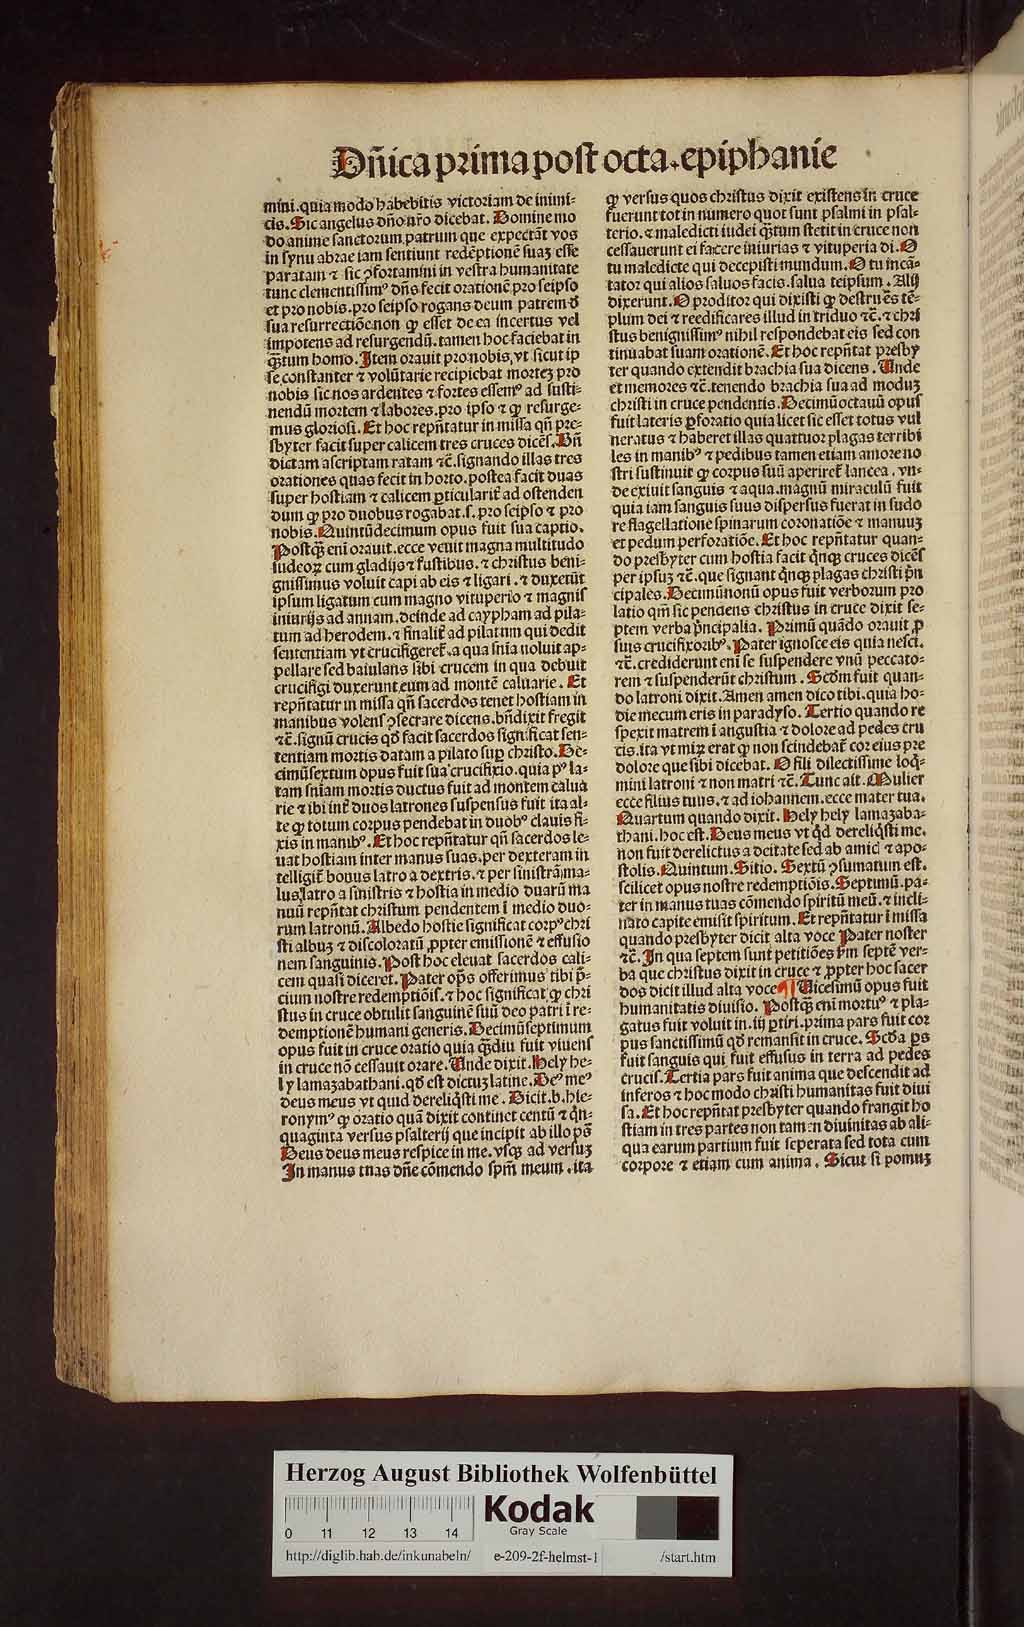 Dn̄ica prima post octa. epiphanie
mini. quia modo habebitis victoriam de inimi-
cis. Sic angelus dn̄o nr̄o dicebat. Domine mo
do anime sanctorum patrum que expectāt vos
in synu abrae iam sentiunt redēptionē suaꝫ esse
paratam ⁊ sic ꝯfortamini in vestra humanitate
tunc clementissimꝰ dn̄s fecit orationē pro seipso
et pro nobis. pro seipso rogans deum patrem ᵭ
sua resurrectiōe. non ꝙ esset de ea incertus vel
impotens ad resurgendū. tamen hoc faciebat in
qꝫtum homo. Item orauit pro nobis, vt sicut ip
se constanter ⁊ volūtarie recipiebat morteꝫ pro
nobis sic nos ardentes ⁊ fortes essemꝰ ad susti-
nendū mortem ⁊ labores. pro ipso ⁊ ꝙ resurge-
mus gloriosi. Et hoc repn̄tatur in missa qn̄ pre-
sbyter facit super calicem tres cruces dicēs. Bn̄
dictam ascriptam ratam ⁊c̄. signando illas tres
orationes quas fecit in horto. postea facit duas
super hostiam ⁊ calicem ꝑticularit̄ ad ostenden
dum ꝙ pro duobus rogabat. s. pro seipso ⁊ pro
nobis. Quintūdecimum opus fuit sua captio.
Postqꝫ em̄ orauit. ecce venit magna multitudo
iudeoꝝ cum gladijs ⁊ fustibus. ⁊ christus beni-
gnissimus voluit capi ab eis ⁊ ligari. ⁊ duxerūt
ipsum ligatum cum magno vituperio ⁊ magnis
iniurijs ad annam. deinde ad caypham ad pila-
tum ad herodem. ⁊ finalit̄ ad pilatum qui dedit
sententiam vt crucifigeret̄. a qua sn̄ia noluit ap-
pellare sed baiulans sibi crucem in qua debuit
crucifigi duxerunt eum ad montē caluarie. Et
repn̄tatur in missa qn̄ sacerdos tenet hostiam in
manibus volens ꝯsecrare dicens. bn̄dixit fregit
⁊c̄. signū crucis qd̄ facit sacerdos significat sen-
tentiam mortis datam a pilato suꝑ christo. De-
cimūsextum opus fuit sua crucifixio. quia pꝰ la-
tam sn̄iam mortis ductus fuit ad montem calua
rie ⁊ ibi int̄ duos latrones suspensus fuit ita al-
te ꝙ totum corpus pendebat in duobꝰ clauis fi-
xis in manibꝰ. Et hoc repn̄tatur qn̄ sacerdos le-
uat hostiam inter manus suas. per dexteram in
telligit̄ bonus latro a dextris. ⁊ per sinistrā ma-
lus latro a sinistris ⁊ hostia in medio duarū ma
nuū repn̄tat christum pendentem ī medio duo-
rum latronū. Albedo hostie significat corpꝰ chri
sti albuꝫ ⁊ discoloratū ꝓpter emissionē ⁊ effusio
nem sanguinis. Post hoc eleuat sacerdos cali-
cem quasi diceret. Pater op̄s offerimus tibi p̄-
cium nostre redemptiōis. ⁊ hoc significat ꝙ chri
stus in cruce obtulit sanguinē suū deo patri ī re-
demptionē humani generis. Decimūseptimum
opus fuit in cruce oratio quia qꝫdiu fuit viuens
in cruce nō cessauit orare. Unde dixit. Hely he-
ly lamaꝫabathani. qd̄ est dictuꝫ latine. Deꝰ meꝰ
deus meus vt quid dereliqsti me. Dicit. b. hie-
ronymꝰ ꝙ oratio quā dixit continet centū ⁊ qn̄-
quaginta versus psalterij que incipit ab illo ps̄
Deus deus meus respice in me. vsqꝫ ad versuꝫ
In manus tuas dn̄e cōmendo spm̄ meum. ita
ꝙ versus quos christus dixit existens in cruce
fuerunt tot in numero quot sunt psalmi in psal-
terio. ⁊ maledicti iudei qꝫtum stetit in cruce non
cessauerunt ei facere iniurias ⁊ vituperia di. O
tu maledicte qui decepisti mundum. O tu incā-
tator qui alios saluos facis. salua teipsum. Alij
dixerunt. O proditor qui dixisti ꝙ destruēs tē-
plum dei ⁊ reedificares illud in triduo ⁊c̄. ⁊ chri
stus benignissimꝰ nihil respondebat eis sed con
tinuabat suam orationē. Et hoc repn̄tat presby
ter quando extendit brachia sua dicens. Unde
et memores ⁊c̄. tenendo brachia sua ad moduꝫ
christi in cruce pendentis. Decimūoctauū opus
fuit lateris ꝑforatio quia licet sic esset totus vul
neratus ⁊ haberet illas quattuor plagas terribi
les in manibꝰ ⁊ pedibus tamen etiam amore no
stri sustinuit ꝙ corpus suū aperiret̄ lancea. vn-
de exiuit sanguis ⁊ aqua. magnū miraculū fuit
quia iam sanguis suus dispersus fuerat in sudo
re flagellatione spinarum coronatiōe ⁊ manuuꝫ
et pedum perforatiōe. Et hoc repn̄tatur quan-
do presbyter cum hostia facit qn̄qꝫ cruces dicēs
per ipsuꝫ ⁊c̄. que signant qn̄qꝫ plagas christi p̄n
cipales. Decimūnonū opus fuit verborum pro
latio qm̄ sic pendens christus in cruce dixit se-
ptem verba p̄ncipalia. Primū quādo orauit ꝓ
suis crucifixoribꝰ. Pater ignosce eis quia nesci.
⁊c̄. crediderunt em̄ se suspendere vnū peccato-
rem ⁊ suspenderūt christum. Scd̄m fuit quan-
do latroni dixit. Amen amen dico tibi. quia ho-
die mecum eris in paradyso. Tertio quando re
spexit matrem ī angustia ⁊ dolore ad pedes cru
cis. ita vt miꝝ erat ꝙ non scindebat̄ cor eius pre
dolore que sibi dicebat. O fili dilectissime loq̄-
mini latroni ⁊ non matri ⁊c̄. Tunc ait. Mulier
ecce filius tuus. ⁊ ad iohannem. ecce mater tua.
Quartum quando dixit. Hely hely lamaꝫaba-
thani. hoc est. Deus meus vt qd̄ dereliqsti me.
non fuit derelictus a deitate sed ab amicꝭ ⁊ apo-
stolis. Quintum. Sitio. Sextū ꝯsumatum est.
scilicet opus nostre redemptiōis. Septimū. pa-
ter in manus tuas cōmendo spiritū meū. ⁊ incli-
nato capite emisit spiritum. Et repn̄tatur ī missa
quando presbyter dicit alta voce Pater noster
⁊c̄. In qua septem sunt petitiōes ẜm septē ver-
ba que christus dixit in cruce ⁊ ꝓpter hoc sacer
dos dicit illud alta voce ¶ Uicesimū opus fuit
humanitatis diuisio. Postqꝫ em̄ mortuꝰ ⁊ pla-
gatus fuit voluit in. iij ꝑtiri. prima pars fuit cor
pus sanctissimū qd̄ remansit in cruce. Scd̄a ꝑs
fuit sanguis qui fuit effusus in terra ad pedes
crucis. Tertia pars fuit anima que descendit ad
inferos ⁊ hoc modo christi humanitas fuit diui
sa. Et hoc repn̄tat presbyter quando frangit ho
stiam in tres partes non tamen diuinitas ab ali-
qua earum partium fuit seperata sed tota cum
corpore ⁊ etiam cum anima. Sicut si pomuꝫ
Herzog August Bibliothek Wolfenbüttel
0 11 12 13 14
Kodak
Gray Scale
http://diglib.hab.de/inkunabeln/ e-209-2f-helmst-1 /start.htm